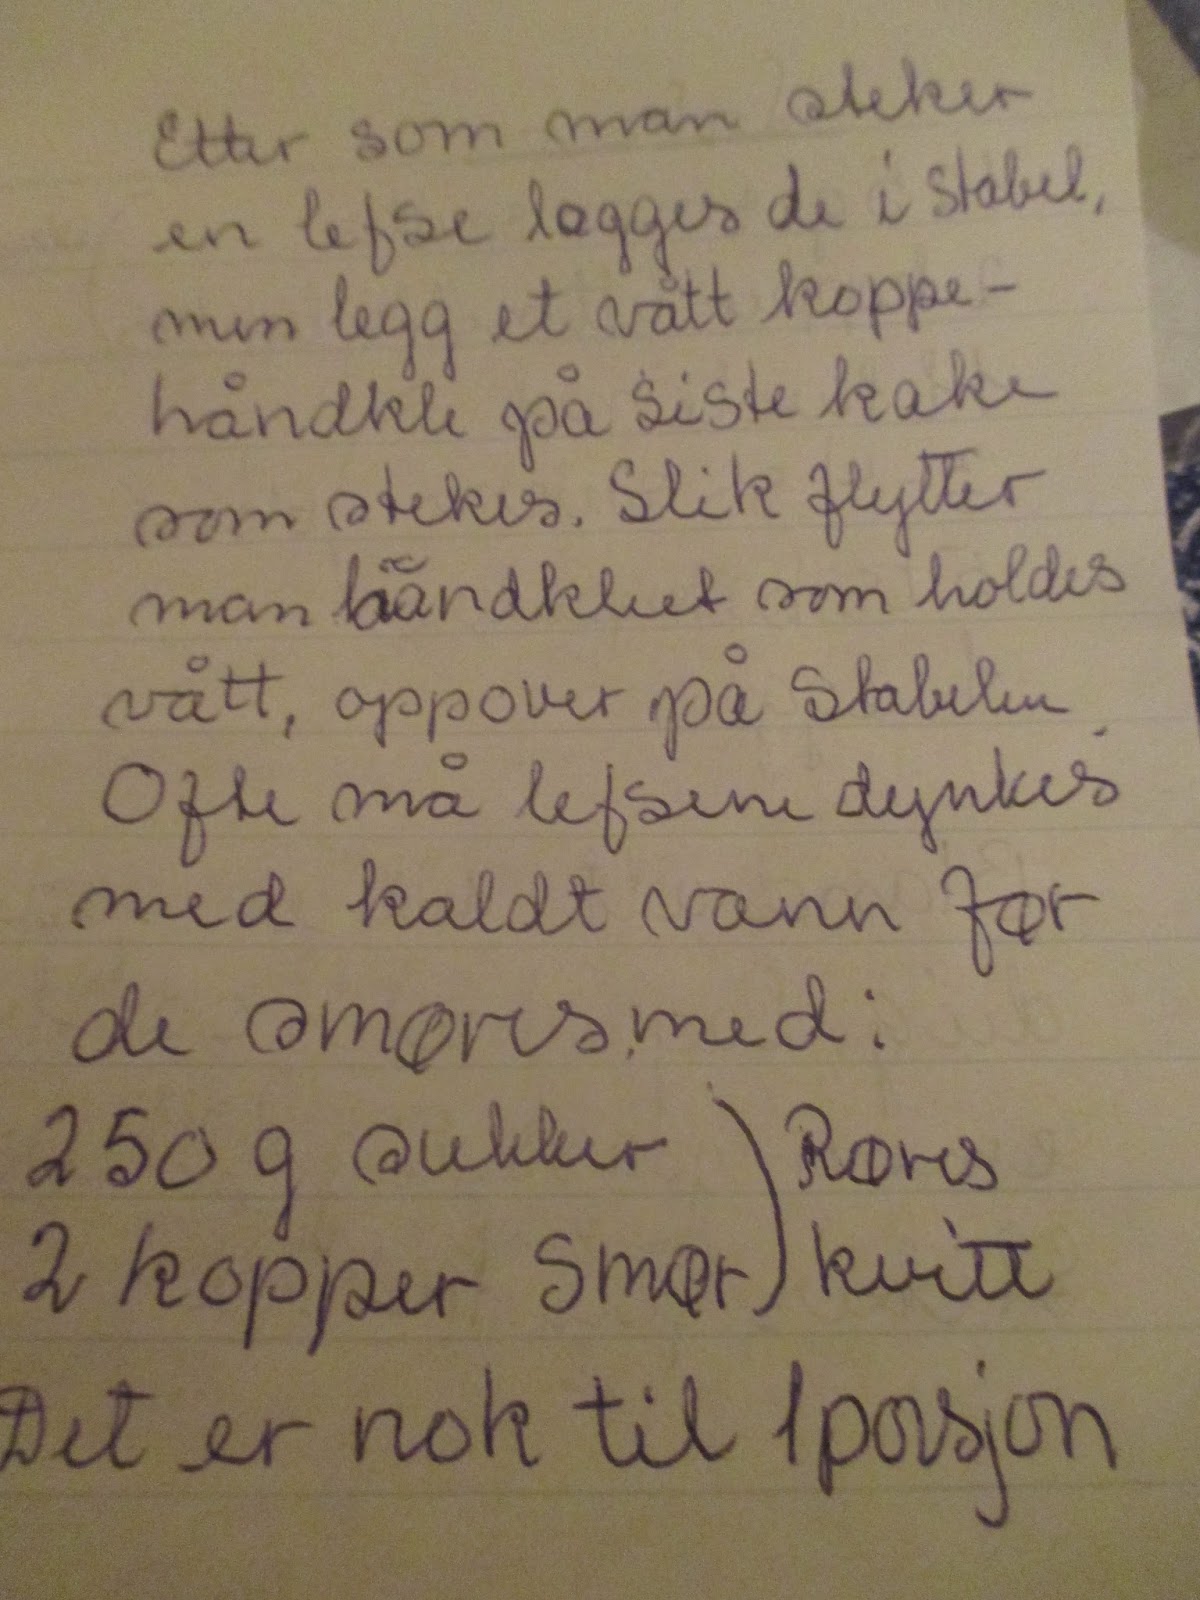 Etter som man steker
en lefse legges de i stabel,
men legg et vått koppe-
håndkle på siste kake
som stekes. Slik flytter
man håndkleet som holdes
vått, oppover på stabelen.
Ofte må lefsene dynkes
med kaldt vann før
de smøres med:
250 g sukker ) Røres
2 kopper smør ) kvitt
Det er nok til 1 porsjon